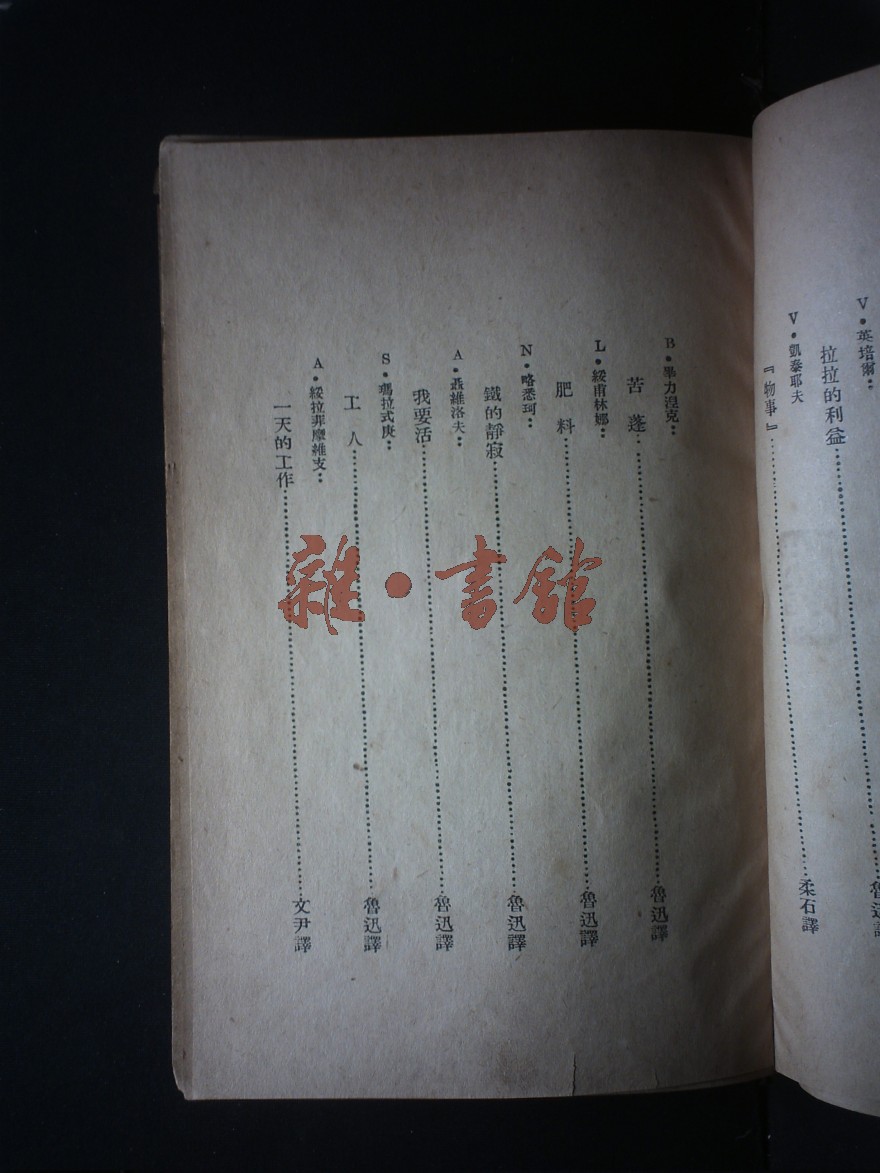 V·英培爾
拉拉的利益
魯迅
V·凱泰耶夫
『物事』
柔石譯
B·畢力涅克：
苦蓬
魯迅譯
L·綏甫林娜：
肥料
魯迅譯
N·略悉珂：
鐵的靜寂
魯迅譯
A·聶維洛夫：
我要活
魯迅譯
S·瑪拉式庚：
工人
魯迅譯
A·綏拉菲摩維支：
一天的工作
文尹譯
雜·書館